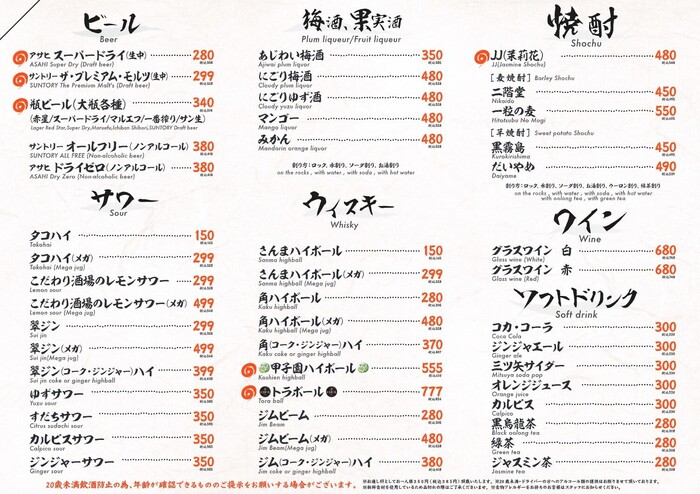 ビール
Beer
アサヒ スーパードライ(生中) 280
ASAHI Super Dry (Draft beer)
サントリー ザ・プレミアム・モルツ(生中) 299
SUNTORY The Premium Malt's (Draft beer)
瓶ビール(大瓶各種) 340
(赤星/スーパードライ/マルエフ/一番搾り/サン生)
Lager Red Star, Super Dry, Maruefu, Ichiban Shibori, SUNTORY Draft beer
サントリー オールフリー(ノンアルコール) 380
SUNTORY ALL FREE (Non-alcoholic beer)
アサヒ ドライゼロ(ノンアルコール) 380
ASAHI Dry Zero (Non-alcoholic beer)
サワー
Sour
タコハイ 150
Takohai
タコハイ(メガ) 299
Takohai (Mega jug)
こだわり酒場のレモンサワー 299
Lemon sour
こだわり酒場のレモンサワー(メガ) 499
Lemon sour (Mega jug)
翠ジン 299
Sui jin
翠ジン(メガ) 499
Sui jin(Mega jug)
翠ジン(コーク・ジンジャー)ハイ 399
Sui jin coke or ginger highball
ゆずサワー 350
Yuzu sour
すだちサワー 350
Citrus sudachi sour
カルピスサワー 350
Calpico sour
ジンジャーサワー 350
Ginger sour
梅酒、果実酒
Plum liqueur/Fruit liqueur
あじわい梅酒 350
Ajiwai plum liquor
にごり梅酒 480
Cloudy plum liquor
にごりゆず酒 480
Cloudy yuzu liquor
マンゴー 480
Mango liquor
みかん 480
Mandarin orange liquor
割り方:ロック、水割り、ソーダ割り、お湯割り
on the rocks , with water , with soda , with hot water
ウィスキー
Whisky
さんまハイボール 150
Sanma highball
さんまハイボール(メガ) 299
Sanma highball (Mega jug)
角ハイボール 280
Kaku highball
角ハイボール(メガ) 480
Kaku highball (Mega jug)
角(コーク・ジンジャー)ハイ 370
Kaku coke or ginger highball
甲子園ハイボール 555
Koshien highball
トラボール 777
Tora ball
ジムビーム 280
Jim Beam
ジムビーム(メガ) 480
Jim Beam(Mega jug)
ジム(コーク・ジンジャー)ハイ 360
Jim coke or ginger highball
焼酎
Shochu
JJ(茉莉花) 480
JJ(Jasmine Shochu)
[麦焼酎] Barley Shochu
二階堂 450
Nikaido
一粒の麦 550
Hitotsubu No Mugi
[芋焼酎] Sweet potato Shochu
黒霧島 450
Kurokirishima
だいやめ 490
Daiyame
割り方:ロック、水割り、ソーダ割り、お湯割り、ウーロン割り、緑茶割り
on the rocks , with water , with soda , with hot water
with oolong tea , with green tea
ワイン
Wine
グラスワイン 白 680
Glass wine (White)
グラスワイン 赤 680
Glass wine (Red)
ソフトドリンク
Soft drink
コカ・コーラ 300
Coca Cola
ジンジャエール 300
Ginger ale
三ツ矢サイダー 300
Mitsuya soda pop
オレンジジュース 300
Orange juice
カルピス 300
Calpico
黒烏龍茶 280
Black oolong tea
緑茶 280
Green tea
ジャスミン茶 280
Jasmine tea
20歳未満飲酒防止の為、年齢が確認できるもののご提示をお願いする場合がございます。